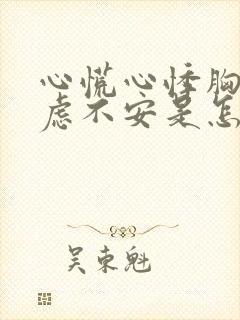 心慌心悸胸
虑不安是怎
吴东魁